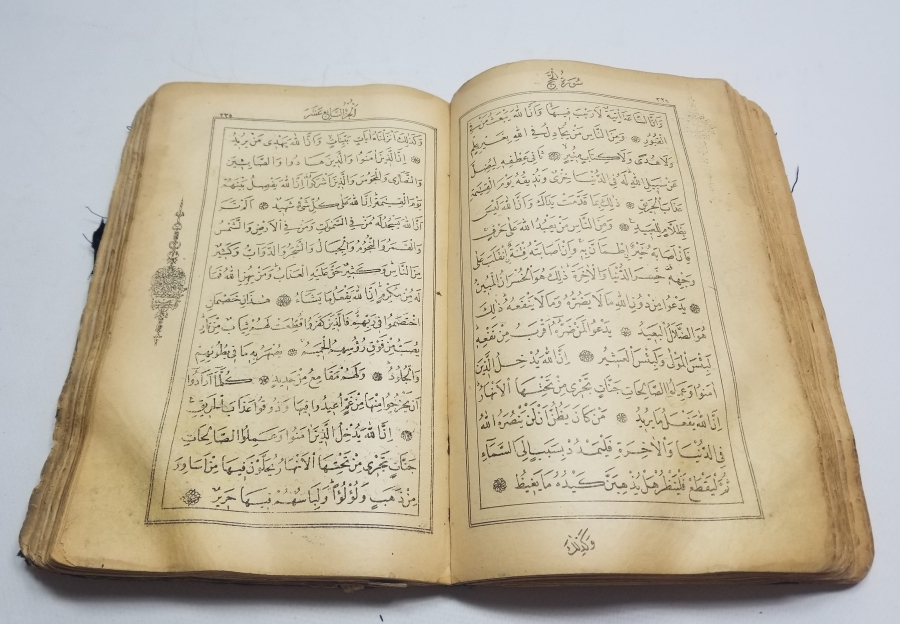 سُورَةُ الْحَجِّ
وَاَنَّ السَّاعَةَ اٰتِيَةٌ لَارَيْبَ فِيهَا وَاَنَّ اللهَ يَبْعَثُ مَنْ فِى
الْقُبُورِ ۞ وَمِنَ النَّاسِ مَنْ يُجَادِلُ فِى اللهِ بِغَيْرِ عِلْمٍ
وَلَا هُدًى وَلَا كِتَابٍ مُنِيرٍ ۞ ثَانِىَ عِطْفِهِ لِيُضِلَّ
عَنْ سَبِيلِ اللهِ لَهُ فِى الدُّنْيَا خِزْىٌ وَنُذِيقُهُ يَوْمَ الْقِيٰمَةِ
عَذَابَ الْحَرِيقِ ۞ ذٰلِكَ بِمَا قَدَّمَتْ يَدَاكَ وَاَنَّ اللهَ لَيْسَ
بِظَلَّامٍ لِلْعَبِيدِ ۞ وَمِنَ النَّاسِ مَنْ يَعْبُدُ اللهَ عَلٰى حَرْفٍ
فَاِنْ اَصَابَهُ خَيْرٌ اِطْمَاَنَّ بِهِ وَاِنْ اَصَابَتْهُ فِتْنَةٌ اِنْقَلَبَ عَلٰى
وَجْهِهِ خَسِرَ الدُّنْيَا وَالْاٰخِرَةَ ذٰلِكَ هُوَ الْخُسْرَانُ الْمُبِينُ
۞ يَدْعُوا مِنْ دُونِ اللهِ مَالَا يَضُرُّهُ وَمَالَا يَنْفَعُهُ ذٰلِكَ
هُوَ الضَّلَالُ الْبَعِيدُ ۞ يَدْعُوا لَمَنْ ضَرُّهُ اَقْرَبُ مِنْ نَفْعِهِ
لَبِئْسَ الْمَوْلٰى وَلَبِئْسَ الْعَشِيرُ ۞ اِنَّ اللهَ يُدْخِلُ الَّذِينَ
اٰمَنُوا وَعَمِلُوا الصَّالِحَاتِ جَنَّاتٍ تَجْرِى مِنْ تَحْتِهَا الْاَنْهَارُ
اِنَّ اللهَ يَفْعَلُ مَا يُرِيدُ ۞ مَنْ كَانَ يَظُنُّ اَنْ لَنْ يَنْصُرَهُ اللهُ
فِى الدُّنْيَا وَالْاٰخِرَةِ فَلْيَمْدُدْ بِسَبَبٍ اِلَى السَّمَآءِ
ثُمَّ لْيَقْطَعْ فَلْيَنْظُرْ هَلْ يُذْهِبَنَّ كَيْدُهُ مَا يَغِيظُ ۞
وَكَذٰلِكَ
اَلْجُزْءُ السَّابِعَ عَشَرَ
٣٣٥
وَكَذٰلِكَ اَنْزَلْنَاهُ اٰيَاتٍ بَيِّنَاتٍ وَاَنَّ اللهَ يَهْدِى مَنْ يُرِيدُ
۞ اِنَّ الَّذِينَ اٰمَنُوا وَالَّذِينَ هَادُوا وَالصَّابِئِينَ
وَالنَّصَارٰى وَالْمَجُوسَ وَالَّذِينَ اَشْرَكُوا اِنَّ اللهَ يَفْصِلُ بَيْنَهُمْ
يَوْمَ الْقِيٰمَةِ اِنَّ اللهَ عَلٰى كُلِّ شَىْءٍ شَهِيدٌ ۞ اَلَمْ تَرَ
اَنَّ اللهَ يَسْجُدُ لَهُ مَنْ فِى السَّمٰوَاتِ وَمَنْ فِى الْاَرْضِ وَالشَّمْسُ
وَالْقَمَرُ وَالنُّجُومُ وَالْجِبَالُ وَالشَّجَرُ وَالدَّوَابُّ وَكَثِيرٌ
مِنَ النَّاسِ وَكَثِيرٌ حَقَّ عَلَيْهِ الْعَذَابُ وَمَنْ يُهِنِ اللهُ فَمَا
لَهُ مِنْ مُكْرِمٍ اِنَّ اللهَ يَفْعَلُ مَا يَشَاءُ ۞ هٰذَانِ خَصْمَانِ
اخْتَصَمُوا فِى رَبِّهِمْ فَالَّذِينَ كَفَرُوا قُطِّعَتْ لَهُمْ ثِيَابٌ مِنْ نَارٍ
يُصَبُّ مِنْ فَوْقِ رُؤُسِهِمُ الْحَمِيمُ ۞ يُصْهَرُ بِهِ مَا فِى بُطُونِهِمْ
وَالْجُلُودُ ۞ وَلَهُمْ مَقَامِعُ مِنْ حَدِيدٍ ۞ كُلَّمَا اَرَادُوا
اَنْ يَخْرُجُوا مِنْهَا مِنْ غَمٍّ اُعِيدُوا فِيهَا وَذُوقُوا عَذَابَ الْحَرِيقِ
۞ اِنَّ اللهَ يُدْخِلُ الَّذِينَ اٰمَنُوا وَعَمِلُوا الصَّالِحَاتِ
جَنَّاتٍ تَجْرِى مِنْ تَحْتِهَا الْاَنْهَارُ يُحَلَّوْنَ فِيهَا مِنْ اَسَاوِرَ
مِنْ ذَهَبٍ وَلُؤْلُؤًا وَلِبَاسُهُمْ فِيهَا حَرِيرٌ ۞